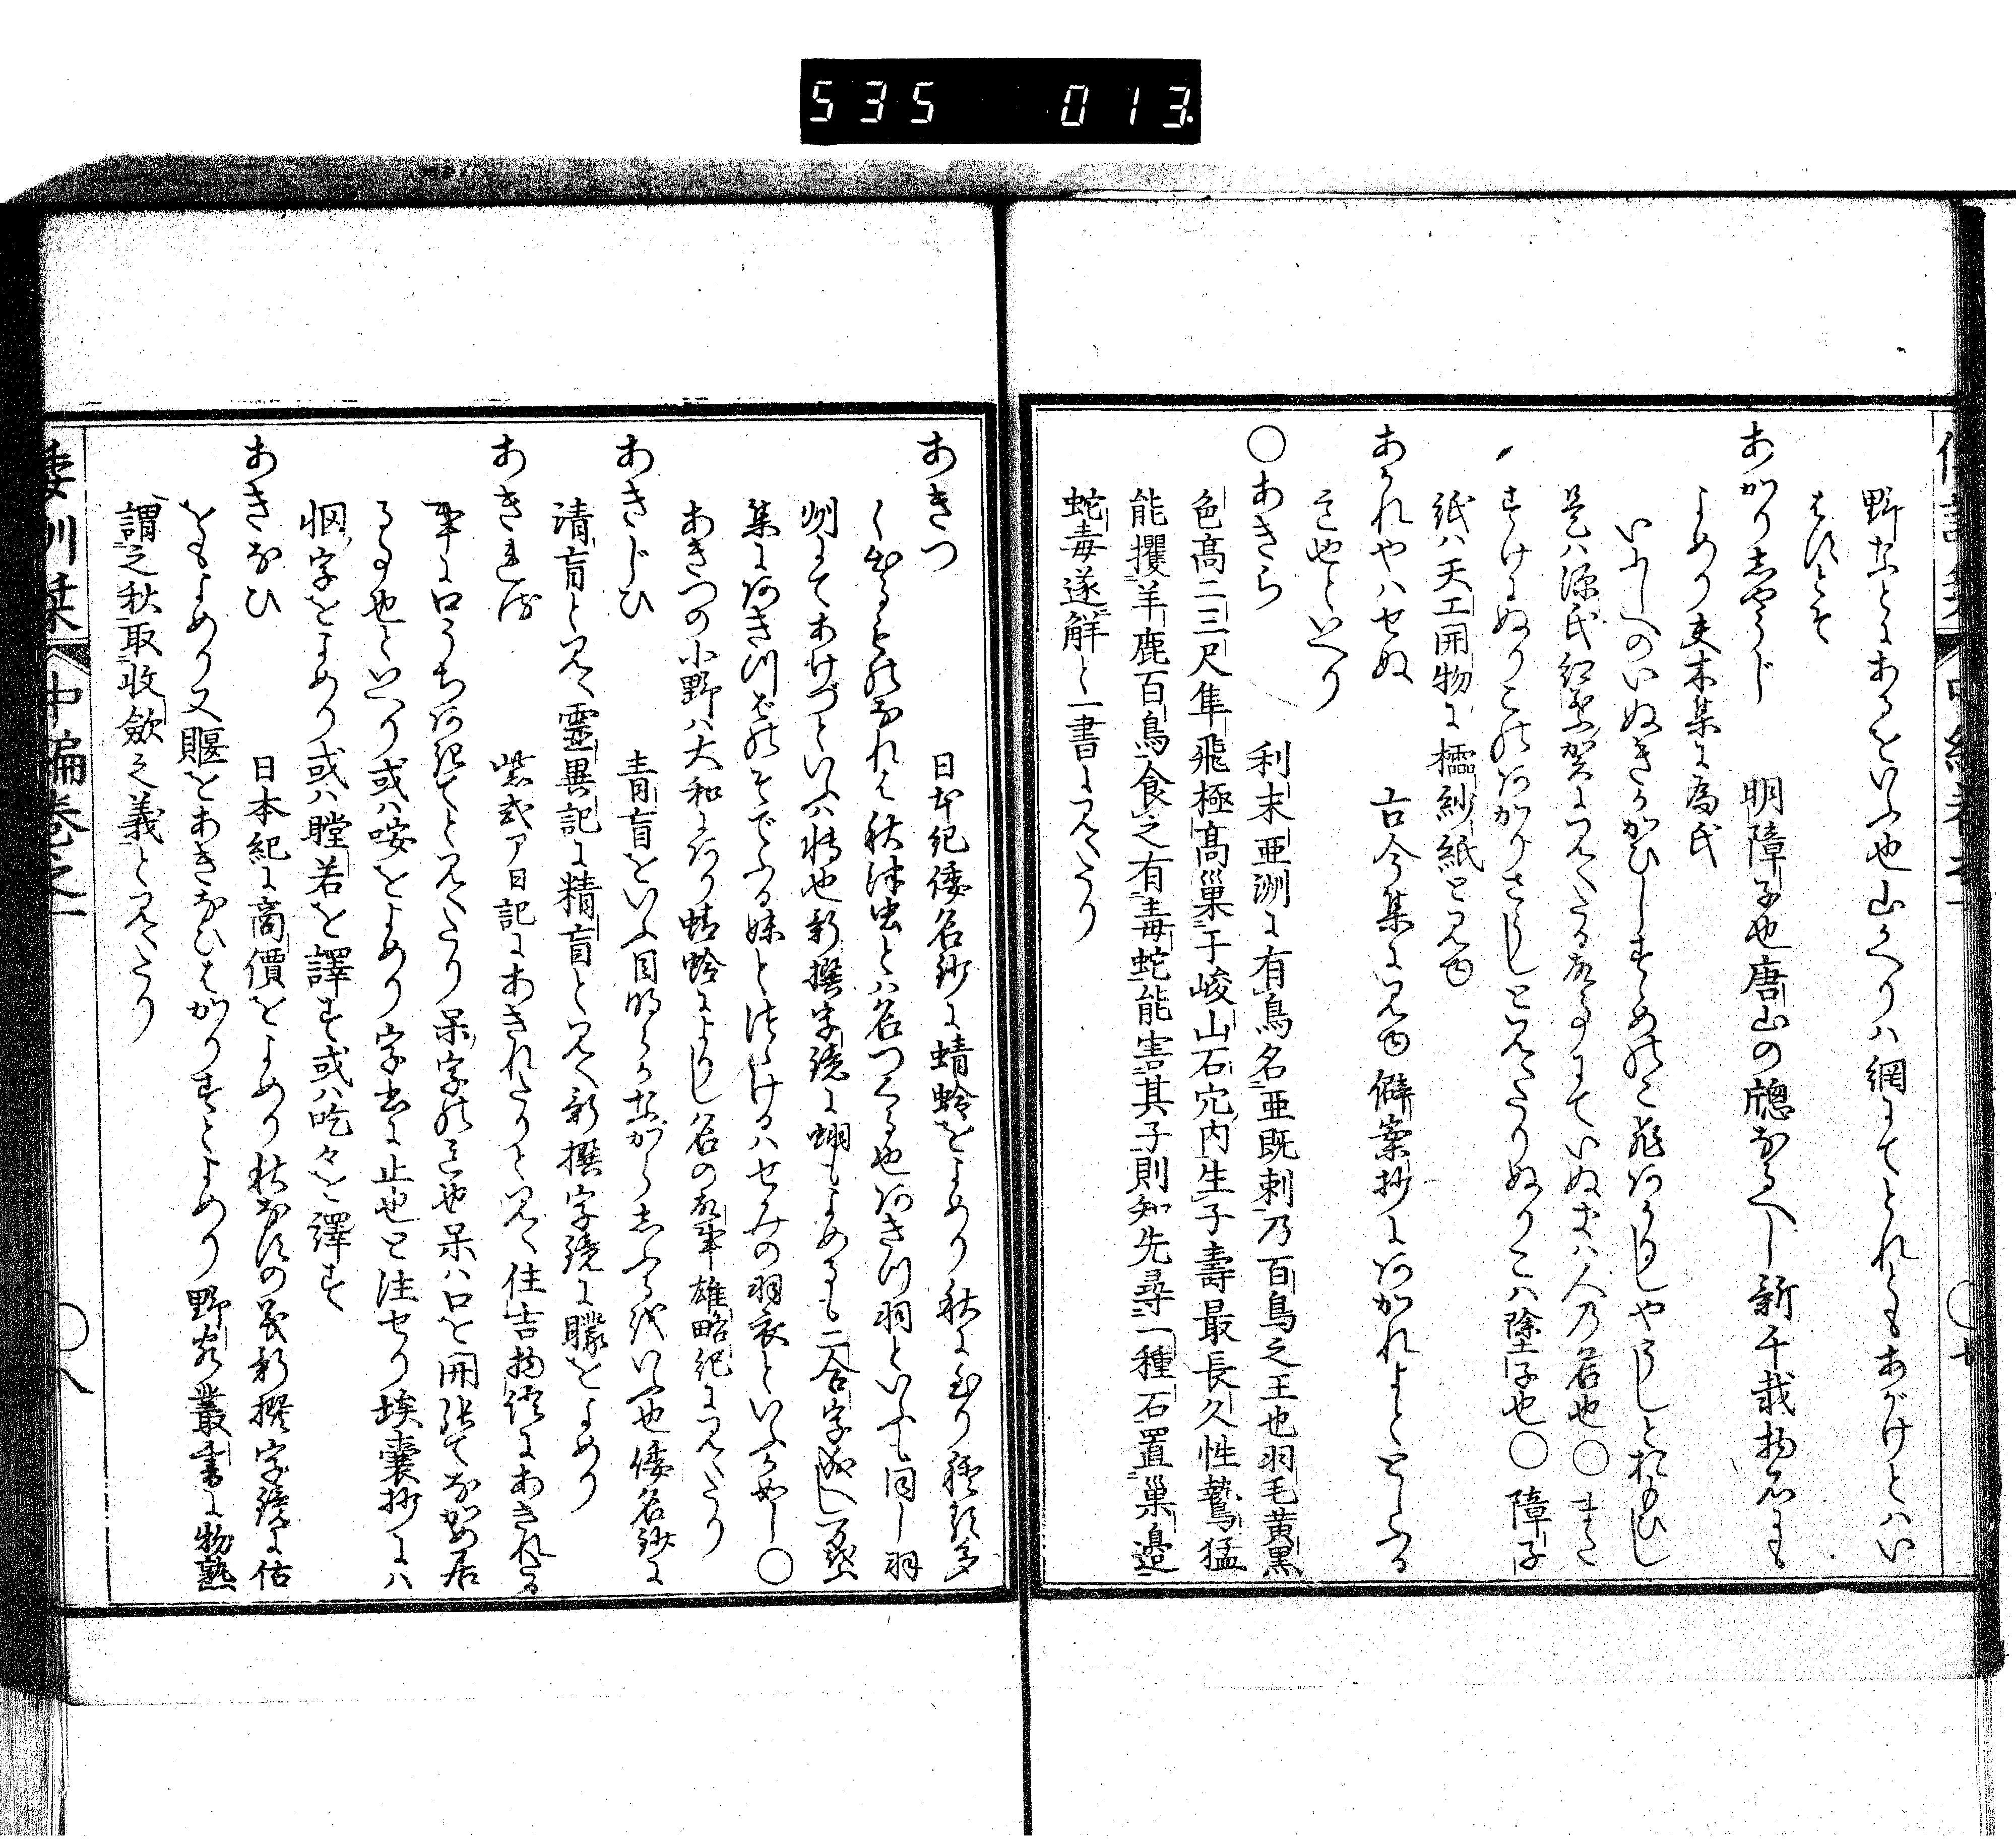 535 013.
野などにあるをいふ也山かへりハ網にてとれともあがけとハい
はすとそ
あかりしやうじ 明障子也唐山の牕なるへし新千載物名にも
よめり夫木集に為氏
いにしへのいぬきかかひしすゝめのこ飛あかりしやうしとおもひし
是ハ源氏紅葉賀に見へたる故事にていぬきハ人乃名也〇また
すけにぬりこのあかりさうしと見へたりぬりこハ塗子也〇障子
紙ハ天工開物に櫺紗紙と見ゆ
あかれやハせぬ 古今集に見ゆ僻案抄にあかれよくといふる
心也といへり
〇あきら 利末亜洲に有鳥名亜既剌乃百鳥之王也羽毛黄黒
色高二三尺隼飛極高巣于峻山石穴内生子壽最長久性鷙猛
能攫羊鹿百鳥食之有毒蛇能害其子則知先尋一種石置巣邉
蛇毒遂解と一書に見へたり
あきつ 日本紀倭名鈔に蜻蛉をよめり秋に至り種類多
く出るものなれは秋津虫とハ名つくる也あきつ羽といふも同し羽
州にてあけづといふハ轉也新撰字鏡に蝴もよめるも二合字成へし万葉
集にあきつはのそでふる妹とつゝけるハせみの羽衣といふか如し〇
あきつの小野ハ大和にあり蜻蛉によりし名の故事雄略紀に見へたり
あきじひ 青盲をいふ目明らかながらしふる成いへ也倭名鈔に
清盲と見え靈異記に精盲と見え新撰字鏡に矇をよめり
あきれる 紫式ア日記にあきれたりと見え住吉物語にあきれたる
事に口うちあきてと見へたり呆字の意也呆ハ口を開張てながめ居
るる也といへり或ハ咹をよめり字書に止也と注せり埃囊抄にハ
惘字をよめり或ハ瞠若を譯す或ハ吃々を譯す
あきなひ 日本紀に商價をよめり秋なすの義新撰字鏡に估
をもよめり又賑をあきなひはかりすとよめり野客叢書に物熟
謂之秋取收歛之義と見へたり
倭訓栞 中編巻之一 〇八